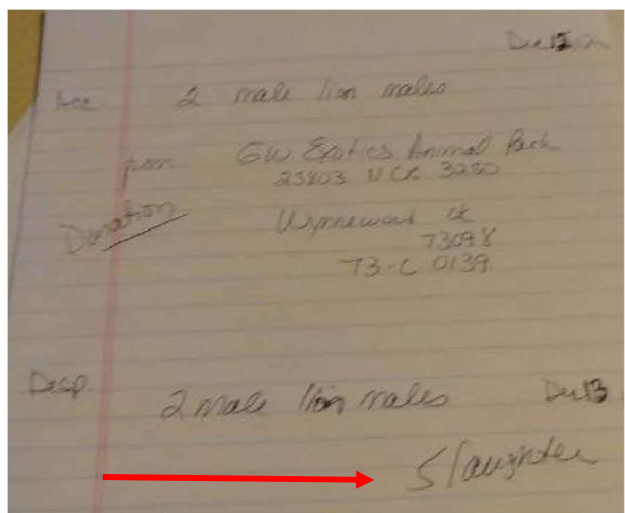 Dec 12
Rec. 2 male lion males
from GW Exotics Animal Park
25803 N CR 3250
Donation Wynnewood Ok
73098
73-C 0139
Desp. 2 male lion males Dec 13
Slaughter